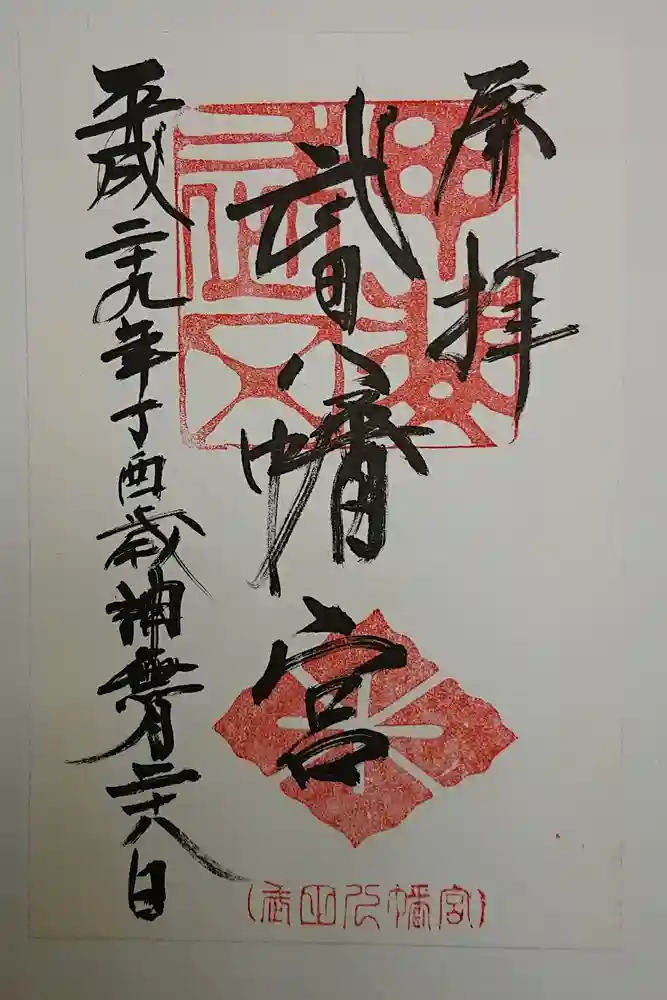 奉拝
武田八幡宮
平成二十九年丁酉歳神無月二十八日
(武田八幡宮)